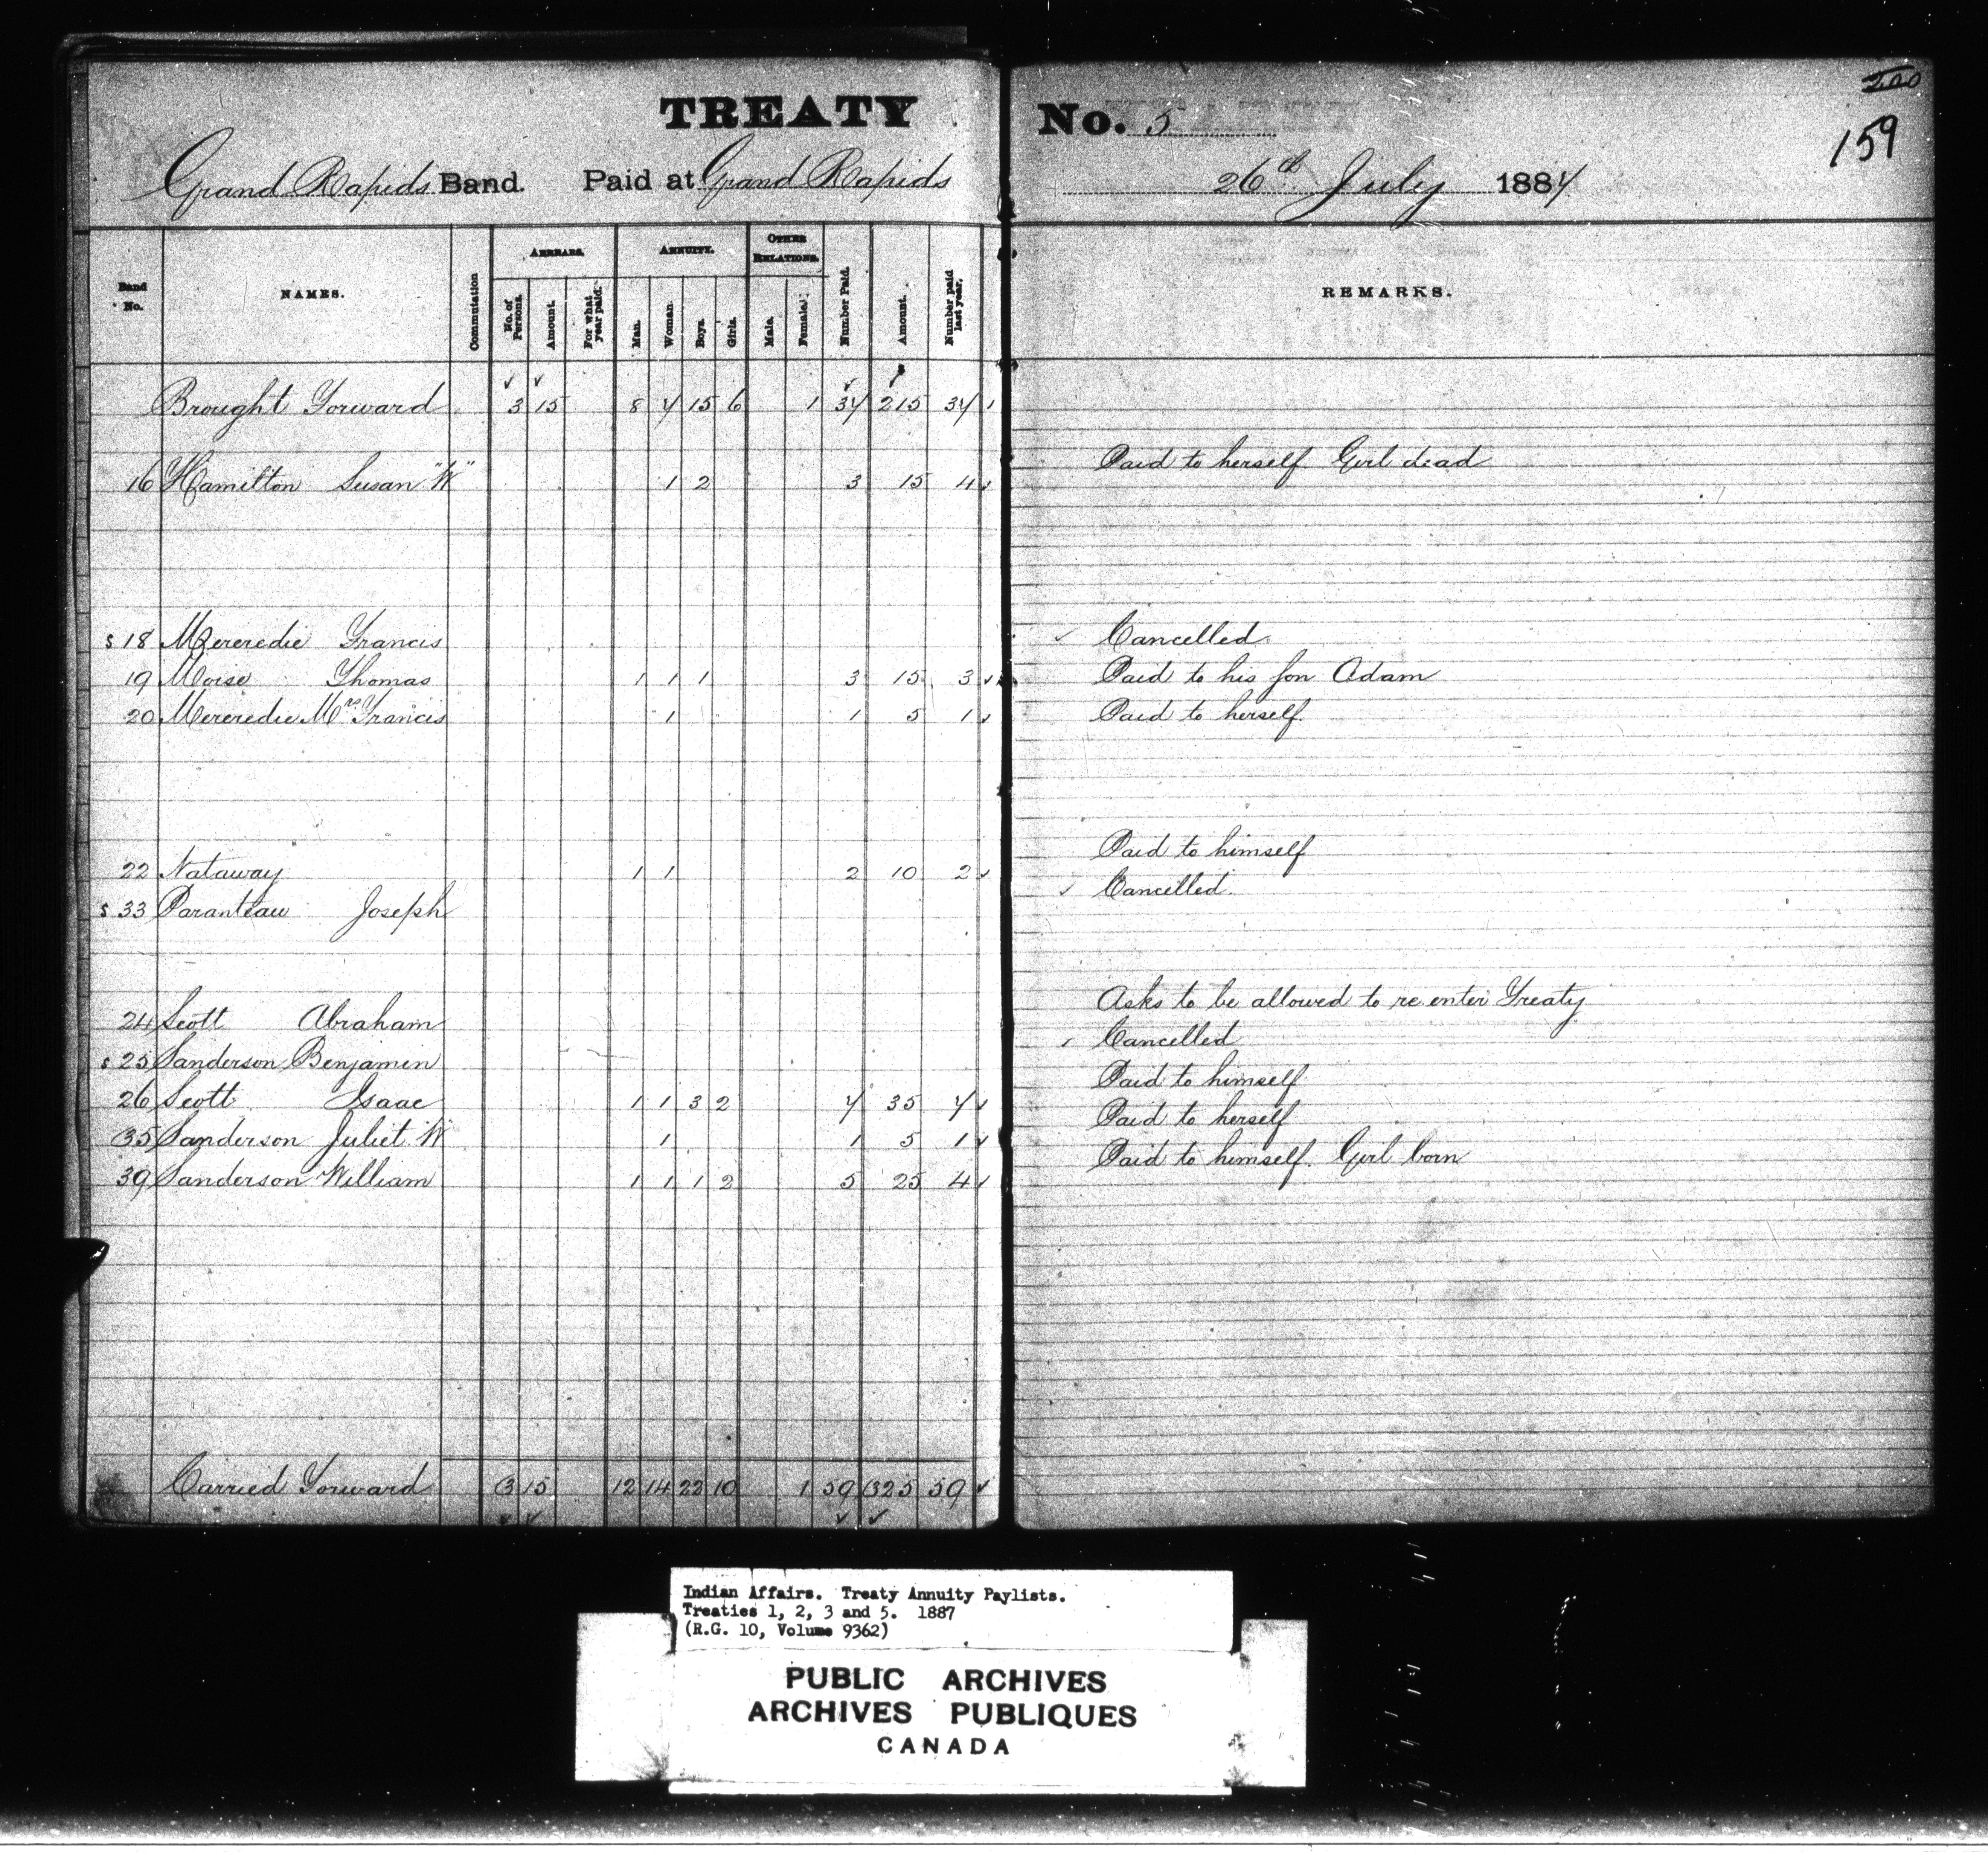 TREATY No. 5
200
159
Grand Rapids Band. Paid at Grand Rapids 26th July 1887
Band No. NAMES. Commutation ARREARS. No. of Persons. Amount. For what year paid. ANNUITY. Man. Woman. Boys. Girls. OTHER RELATIONS. Male. Female. Number Paid. Amount. Number paid last year. REMARKS.
Brought Forward 3 15 8 7 15 6 1 37 215 37
16 Hamilton Susan "W" 1 2 3 15 4 Paid to herself Girl dead
s 18 Mereredie Francis Cancelled.
19 Moise Thomas 1 1 1 3 15 3 Paid to his son Adam
20 Mereredie Mrs Francis 1 1 5 1 Paid to herself
22 Nataway 1 1 2 10 2 Paid to himself
s 33 Paranteau Joseph Cancelled.
24 Scott Abraham Asks to be allowed to re enter Treaty
s 25 Sanderson Benjamin Cancelled
26 Scott Isaac 1 1 3 2 7 35 7 Paid to himself
35 Sanderson Juliet "W" 1 1 5 1 Paid to herself
39 Sanderson William 1 1 1 2 5 25 4 Paid to himself. Girl born
Carried Forward 3 15 12 14 22 10 1 59 325 59
Indian Affairs. Treaty Annuity Paylists.
Treaties 1, 2, 3 and 5. 1887
(R.G. 10, Volume 9362)
PUBLIC ARCHIVES
ARCHIVES PUBLIQUES
CANADA